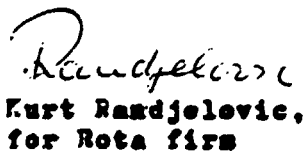 Randjelovic
Kurt Randjelovic,
for Rota firm